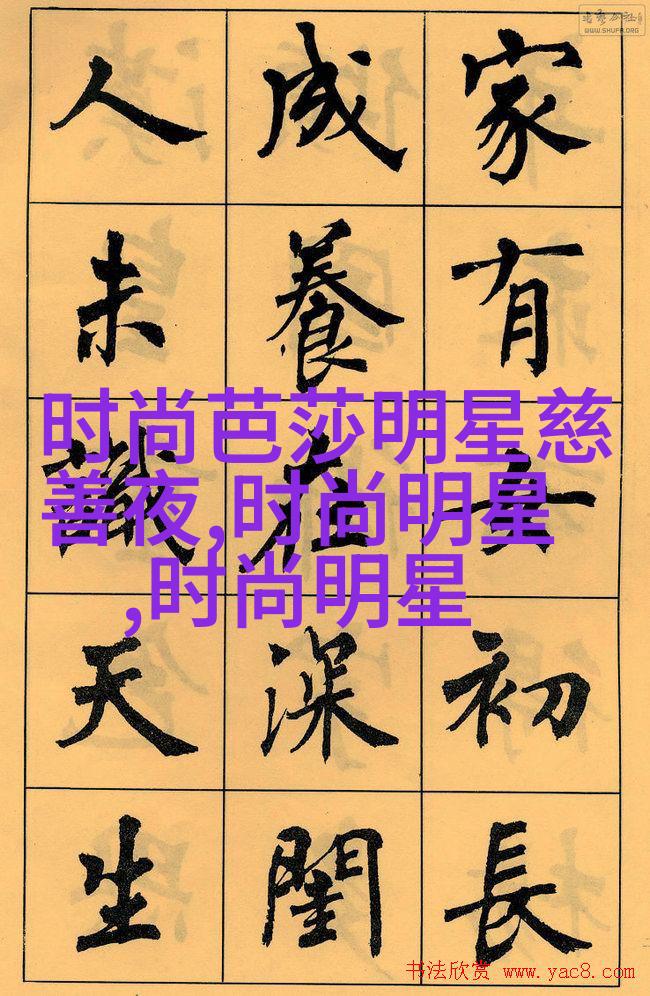 WWW.SHUFA.ORG
家有女初長
成養在深閨
人未識天生
时尚芭莎明星慈
善夜,时尚明星
,时尚明星
书法欣赏 www.yac8.com